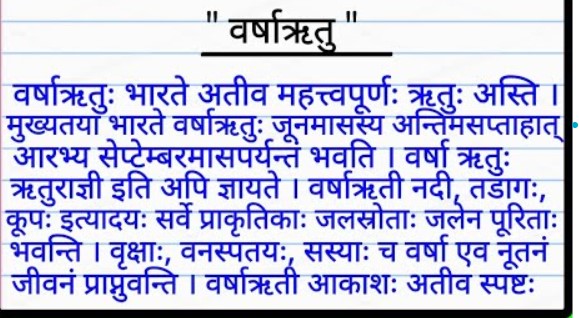 " वर्षाऋतु "
वर्षाऋतुः भारते अतीव महत्त्वपूर्णः ऋतुः अस्ति ।
मुख्यतया भारते वर्षाऋतुः जूनमासस्य अन्तिमसप्ताहात्
आरभ्य सेप्टेम्बरमासपर्यन्तं भवति । वर्षा ऋतुः
ऋतुराज्ञी इति अपि ज्ञायते । वर्षाऋती नदी, तडागः,
कूपः इत्यादयः सर्वे प्राकृतिकाः जलस्रोताः जलेन पूरिताः
भवन्ति । वृक्षाः, वनस्पतयः, सस्याः च वर्षा एव नूतनं
जीवनं प्राप्नुवन्ति । वर्षाऋती आकाशः अतीव स्पष्टः